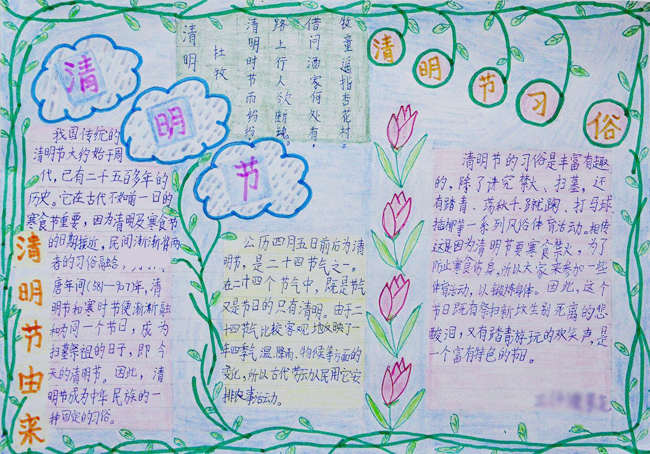 清
明
节
清明
杜牧
清明时节雨纷纷，
路上行人欲断魂。
借问酒家何处有，
牧童遥指杏花村。
清明节习俗
清明节由来
我国传统的
清明节大约始于周
代，已有二千五百多年的
历史。它在古代不如前一日的
寒食节重要，因为清明及寒食节
的日期接近，民间渐渐将两
者的习俗融合，......
唐年间(
清明
节和寒时节便渐渐融
和为同一个节日，成为
扫墓祭祖的日子，即今
天的清明节。因此，清
明节成为中华民族的一
种固定的习俗。
公历四月五日前后为清
明节，是二十四节气之一。
在二十四个节气中，既是节气
又是节日的只有清明。由于二
十四节气比较客观地反映了一
年四季气温、降雨、物候等方面的
变化，所以古代劳动人民用它安
排农事活动。
清明节的习俗是丰富有趣
的，除了讲究禁火、扫墓，还
有踏青、荡秋千、蹴鞠、打马球、
插柳等一系列风俗体育活动。相传
这是因为清明节要寒食禁火，为了
防止寒食伤身，所以大家来参加一些
体育运动，以锻炼身体。因此，这个
节日既有祭扫新坟生别死离的悲
酸泪，又有踏青游玩的欢笑声，是
一个富有特色的节日。